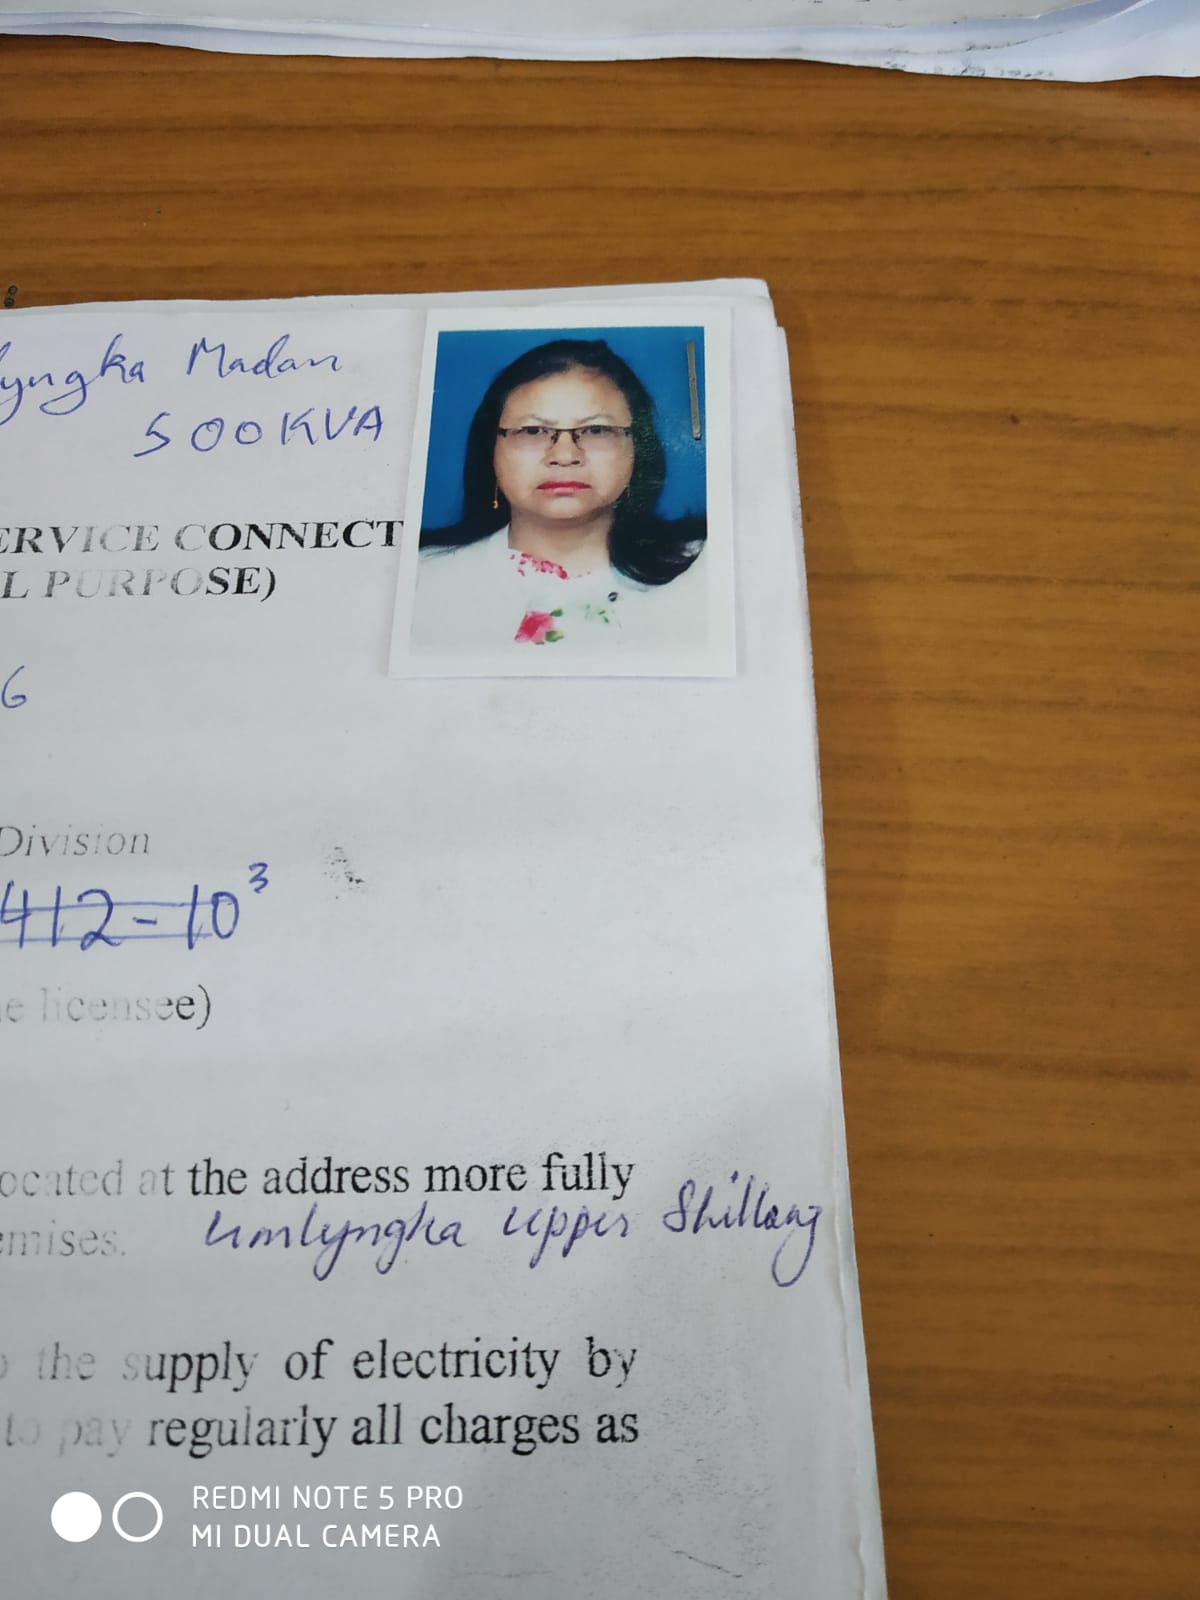 lyngka Madan
500KVA
ERVICE CONNECT
L PURPOSE)
6
Division
412-10³
e licensee)
ocated at the address more fully
emises. Umlyngka Upper Shillong
the supply of electricity by
to pay regularly all charges as
REDMI NOTE 5 PRO
MI DUAL CAMERA